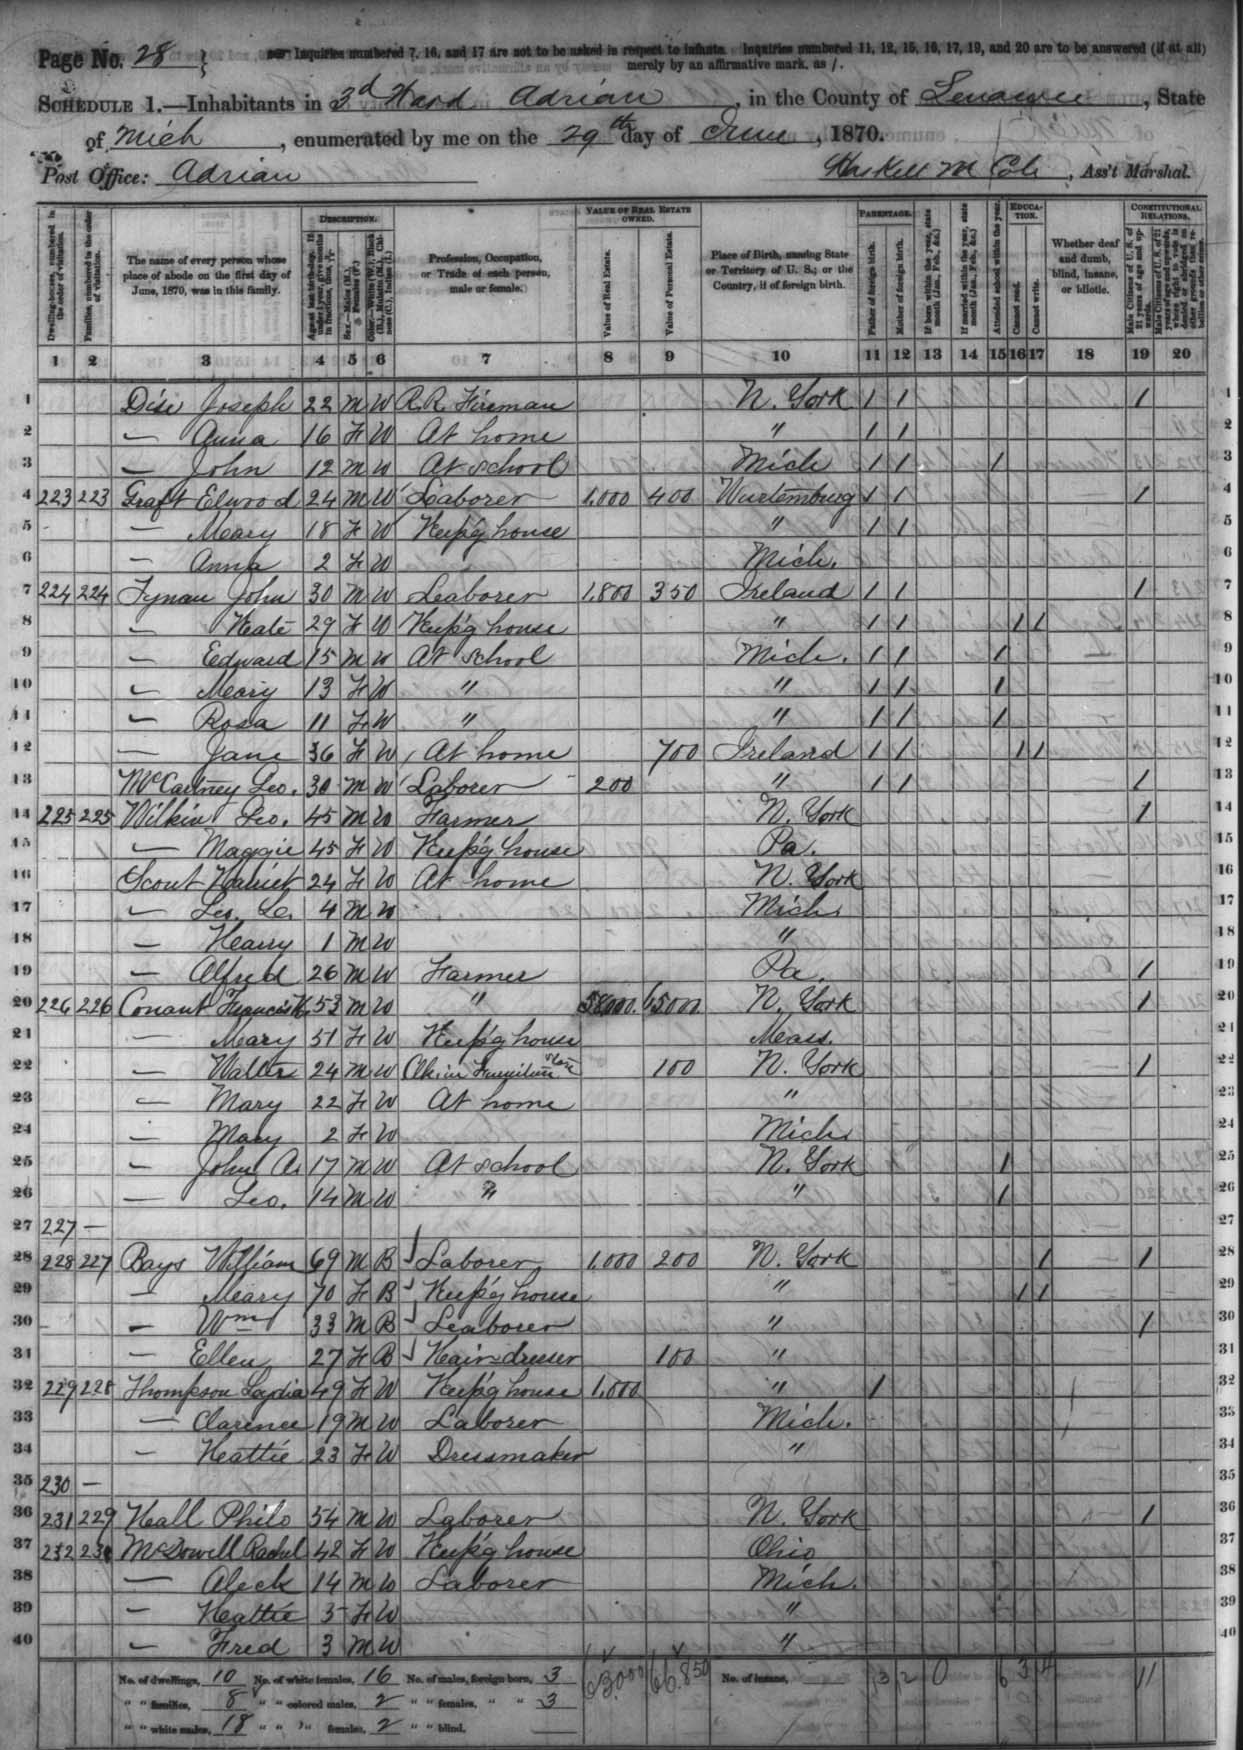 Page No. 28
Inquiries numbered 7, 16, and 17 are not to be asked in respect to infants. Inquiries numbered 11, 12, 15, 16, 17, 19, and 20 are to be answered (if at all)
merely by an affirmative mark, as /.
SCHEDULE 1.—Inhabitants in 3d Ward Adrian, in the County of Lenawee, State
of Mich, enumerated by me on the 29th day of June, 1870.
Post Office: Adrian
Haskell M Cole, Ass't Marshal.
DESCRIPTION. VALUE OF REAL ESTATE OWNED. PARENTAGE. EDUCATION. CONSTITUTIONAL RELATIONS.
Dwelling-houses, numbered in the order of visitation.
Families, numbered in the order of visitation.
The name of every person whose place of abode on the first day of June, 1870, was in this family.
Profession, Occupation, or Trade of each person, male or female.
Value of Real Estate.
Value of Personal Estate.
Place of Birth, naming State or Territory of U. S.; or the Country, if of foreign birth.
Father of foreign birth.
Mother of foreign birth.
If born within the year, state month (Jan., Feb., &c.)
If married within the year, state month (Jan., Feb., &c.)
Attended school within the year.
Cannot read.
Cannot write.
Whether deaf and dumb, blind, insane, or idiotic.
1 2 3 4 5 6 7 8 9 10 11 12 13 14 15 16 17 18 19 20
1 Joseph 22 M W R.R. Fireman N. York / / / 1
2 — Anna 16 F W At home " / / 2
3 — John 12 M W At school Mich / / / 3
4 223 223 Graft Elwood 24 M W Laborer 1,000 400 Wurtemburg / / / 4
5 — Mary 18 F W Keep'g house " / / 5
6 — Anna 2 F W Mich. 6
7 224 224 Tynan John 30 M W Laborer 1,800 350 Ireland / / / 7
8 — Kate 29 F W Keep'g house " / / / / 8
9 — Edward 15 M W At school Mich. / / / 9
10 — Mary 13 F W " " / / / 10
11 — Rosa 11 F W " " / / / 11
12 — Jane 36 F W At home 700 Ireland / / / / 12
13 McCartney Geo. 30 M W Laborer 200 " / / / 13
14 225 225 Wilkin Geo. 45 M W Farmer N. York / 14
15 — Maggie 45 F W Keep'g house Pa. 15
16 Scout Harriet 24 F W At home N. York 16
17 — Geo. 4 M W Mich. 17
18 — Henry 1 M W " 18
19 — Alfred 26 M W Farmer Pa. / 19
20 226 226 Conant Francis 53 M W " 58,000. 65000 N. York / 20
21 — Mary 51 F W Keep'g house Mass. 21
22 — Walter 24 M W Clk. in Furniture Store 100 N. York / 22
23 — Mary 22 F W At home " 23
24 — Mary 2 F W Mich. 24
25 — John A. 17 M W At school N. York / 25
26 — Geo. 14 M W " " / 26
27 227 — 27
28 228 227 Bays William 69 M B Laborer 1,000 200 N. York / / 28
29 — Mary 70 F B Keep'g house " / / 29
30 — Wm 33 M B Laborer " / 30
31 — Ellen 27 F B Hair dresser 100 " 31
32 229 228 Thompson Lydia 49 F W Keep'g house 1,000 " / 32
33 — Clarence 19 M W Laborer Mich. 33
34 — Hattie 23 F W Dressmaker " 34
35 230 — 35
36 231 229 Hall Philo 54 M W Laborer N. York / 36
37 232 230 McDowell Rachel 42 F W Keep'g house Ohio 37
38 — Aleck 14 M W Laborer Mich. 38
39 — Hattie 5 F W " 39
40 — Fred 3 M W " 40
No. of dwellings, 10 No. of white females, 16 No. of males, foreign born, 3 63,000 66,850 No. of insane, 13 12 0 6 3 4 11
" " families, 8 " " colored males, 2 " " females, " " 3
" " white males, 18 " " " females, 2 " " blind,